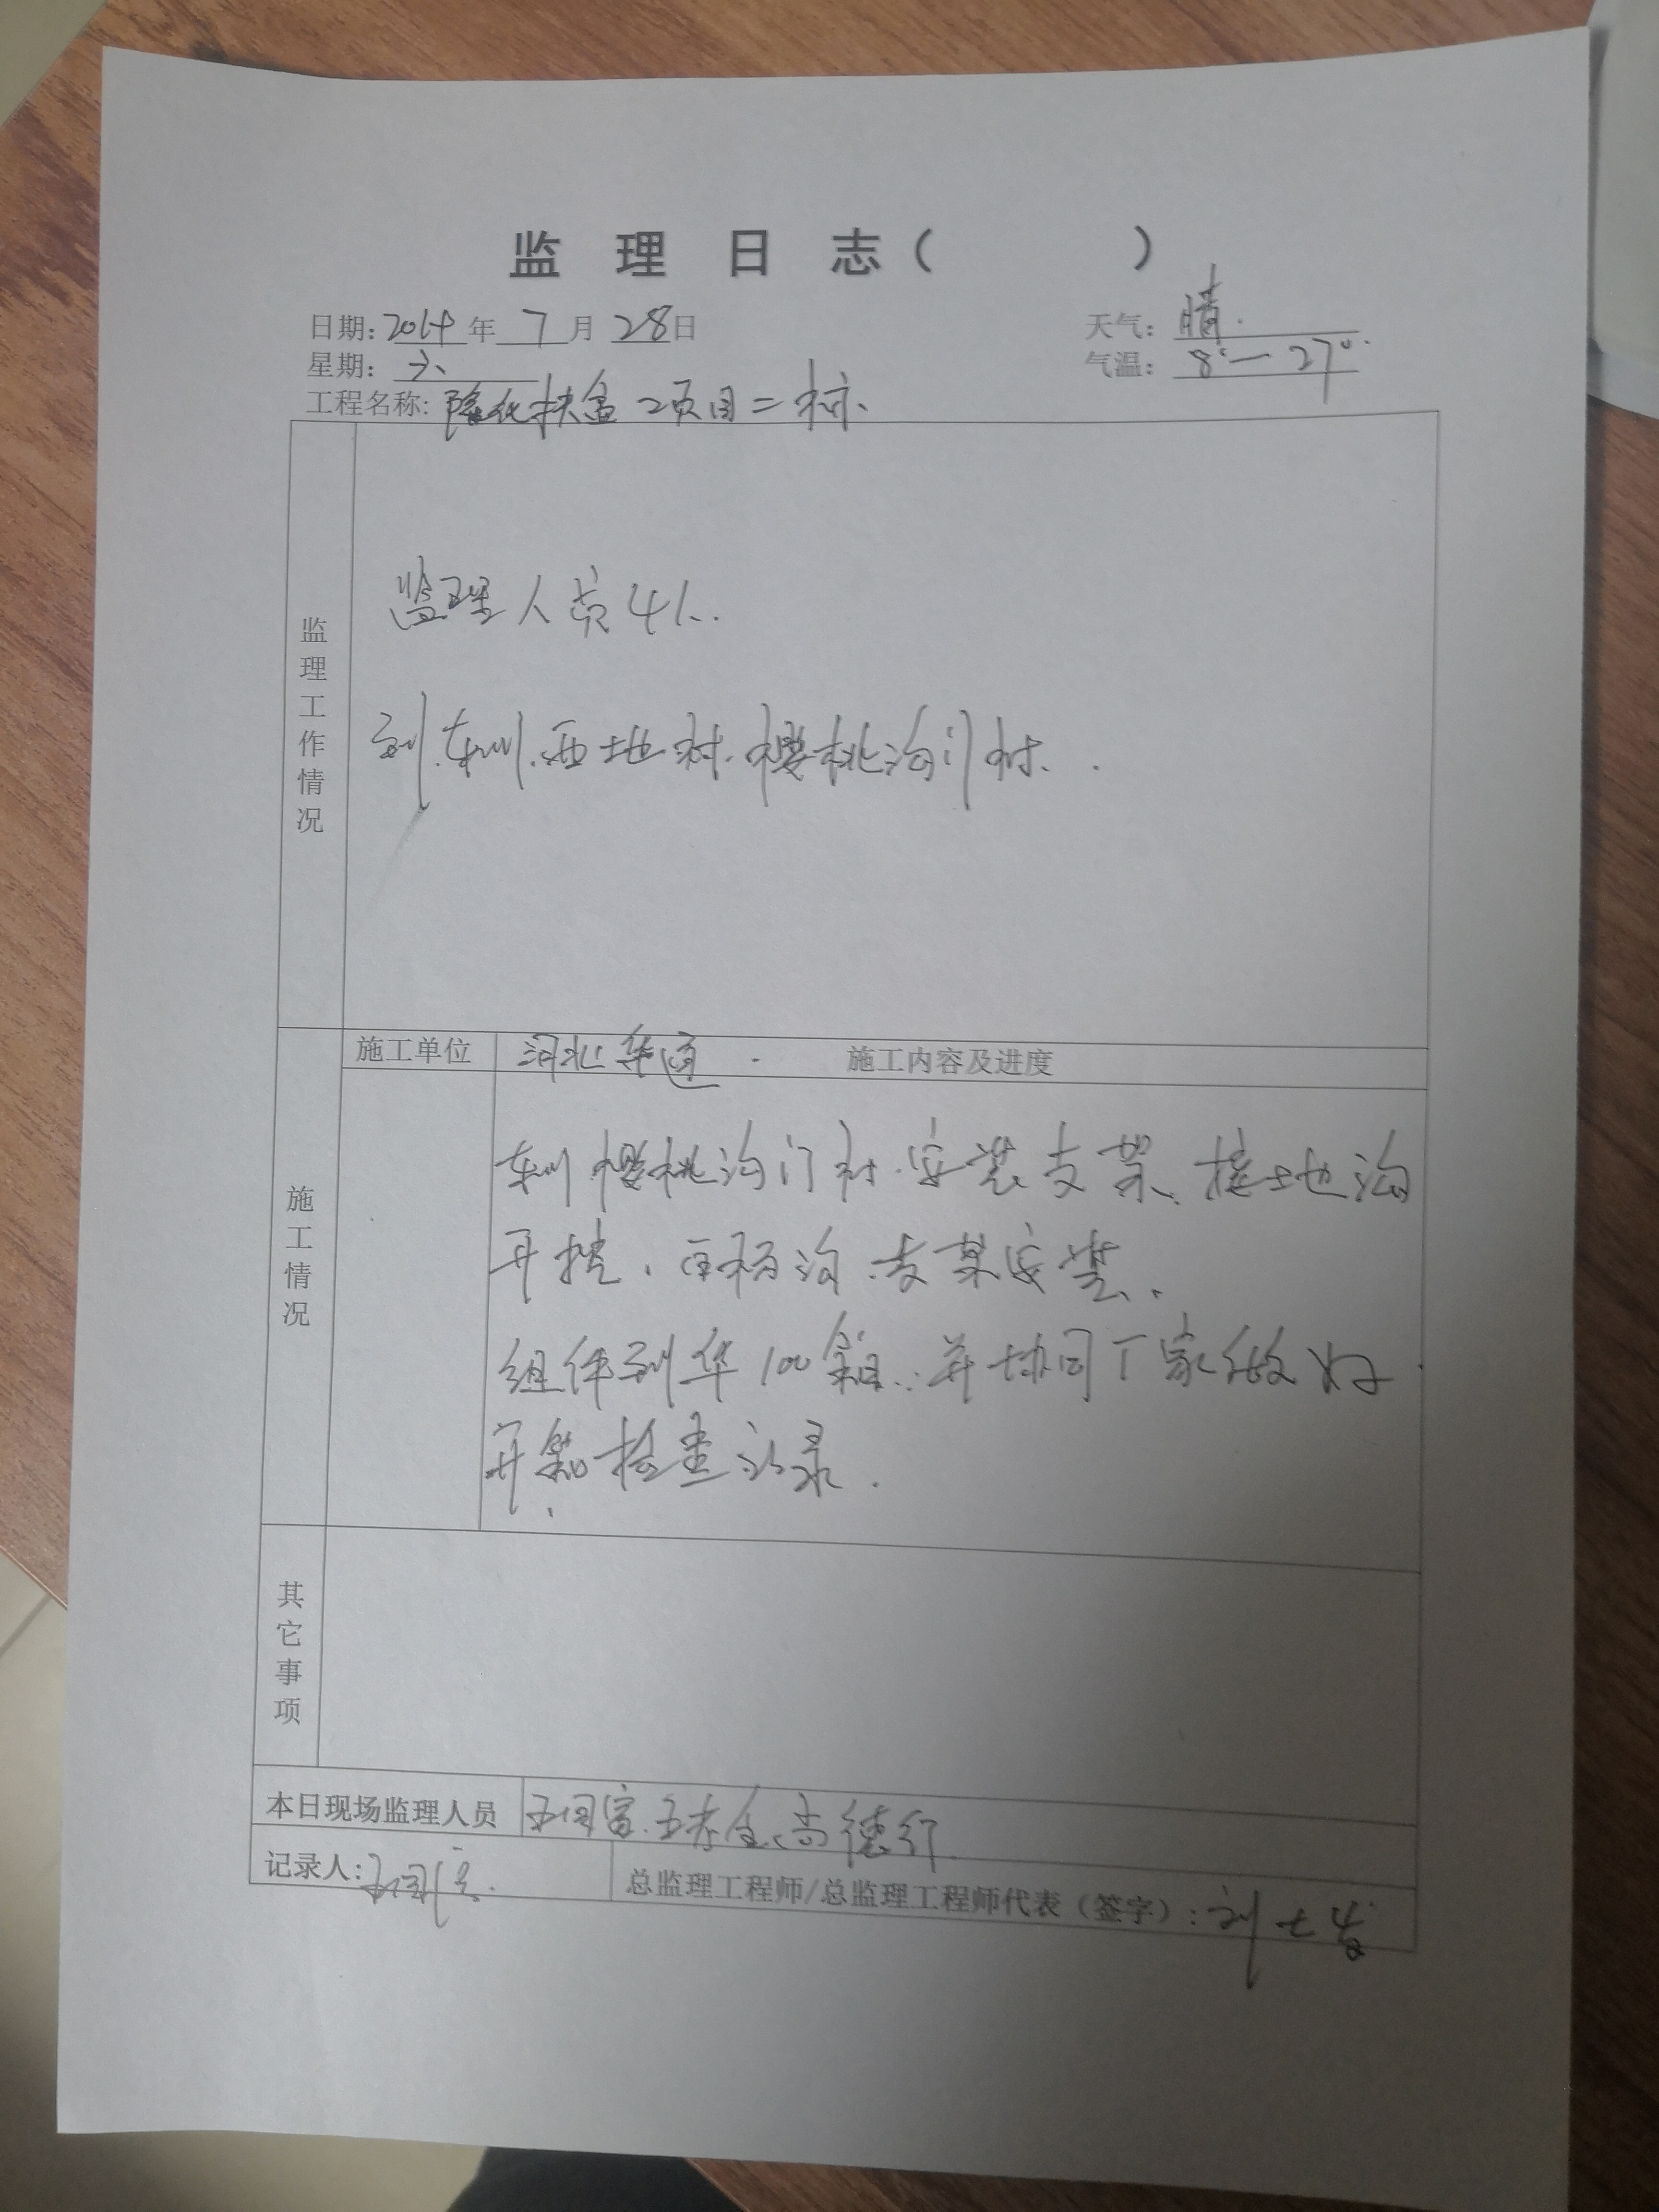 监 理 日 志（ ）
日期：2018年 7 月 28日
天气：晴.
星期：六
气温：8°—27°.
工程名称：隆化扶贫 项目二标、
监理工作情况
监理人员4人.
到.
西地村.樱桃沟门村.
施工单位
河北华通.
施工内容及进度
施工情况
樱桃沟门村.安装支架、接地沟
开挖、 沟支架安装、
组件到华100箱.并协同厂家做好.
开箱检查记录.
其它事项
本日现场监理人员
王国富.王 全、尚德行.
记录人：王国富.
总监理工程师/总监理工程师代表（签字）：刘